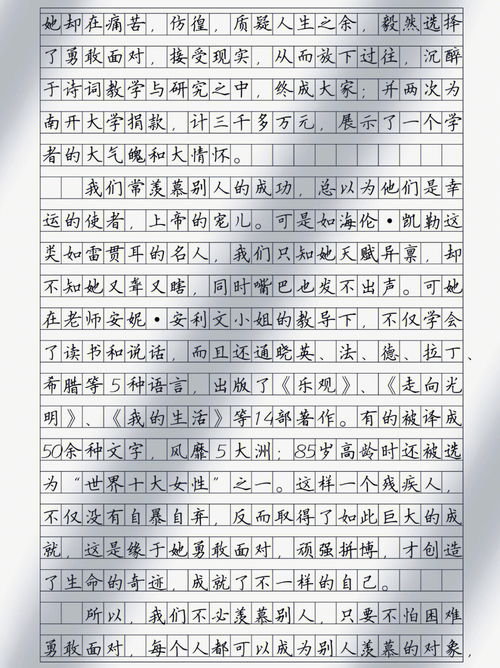 她却在痛苦，仿徨，质疑人生之余，毅然选择
了勇敢面对，接受现实，从而放下过往，沉醉
于诗词教学与研究之中，终成大家；并两次为
南开大学捐款，计三千多万元，展示了一个学
者的大气魄和大情怀。
我们常羡慕别人的成功，总以为他们是幸
运的使者，上帝的宠儿。可是如海伦·凯勒这
类如雷贯耳的名人，我们只知她天赋异禀，却
不知她又聋又瞎，同时嘴巴也发不出声。可她
在老师安妮·安利文小姐的教导下，不仅学会
了读书和说话，而且还通晓英、法、德、拉丁、
希腊等5种语言，出版了《乐观》、《走向光
明》、《我的生活》等14部著作。有的被译成
50余种文字，风靡5大洲；85岁高龄时还被选
为“世界十大女性”之一。这样一个残疾人，
不仅没有自暴自弃，反而取得了如此巨大的成
就，这是缘于她勇敢面对，顽强拼博，才创造
了生命的奇迹，成就了不一样的自己。
所以，我们不必羡慕别人，只要不怕困难
勇敢面对，每个人都可以成为别人羡慕的对象，